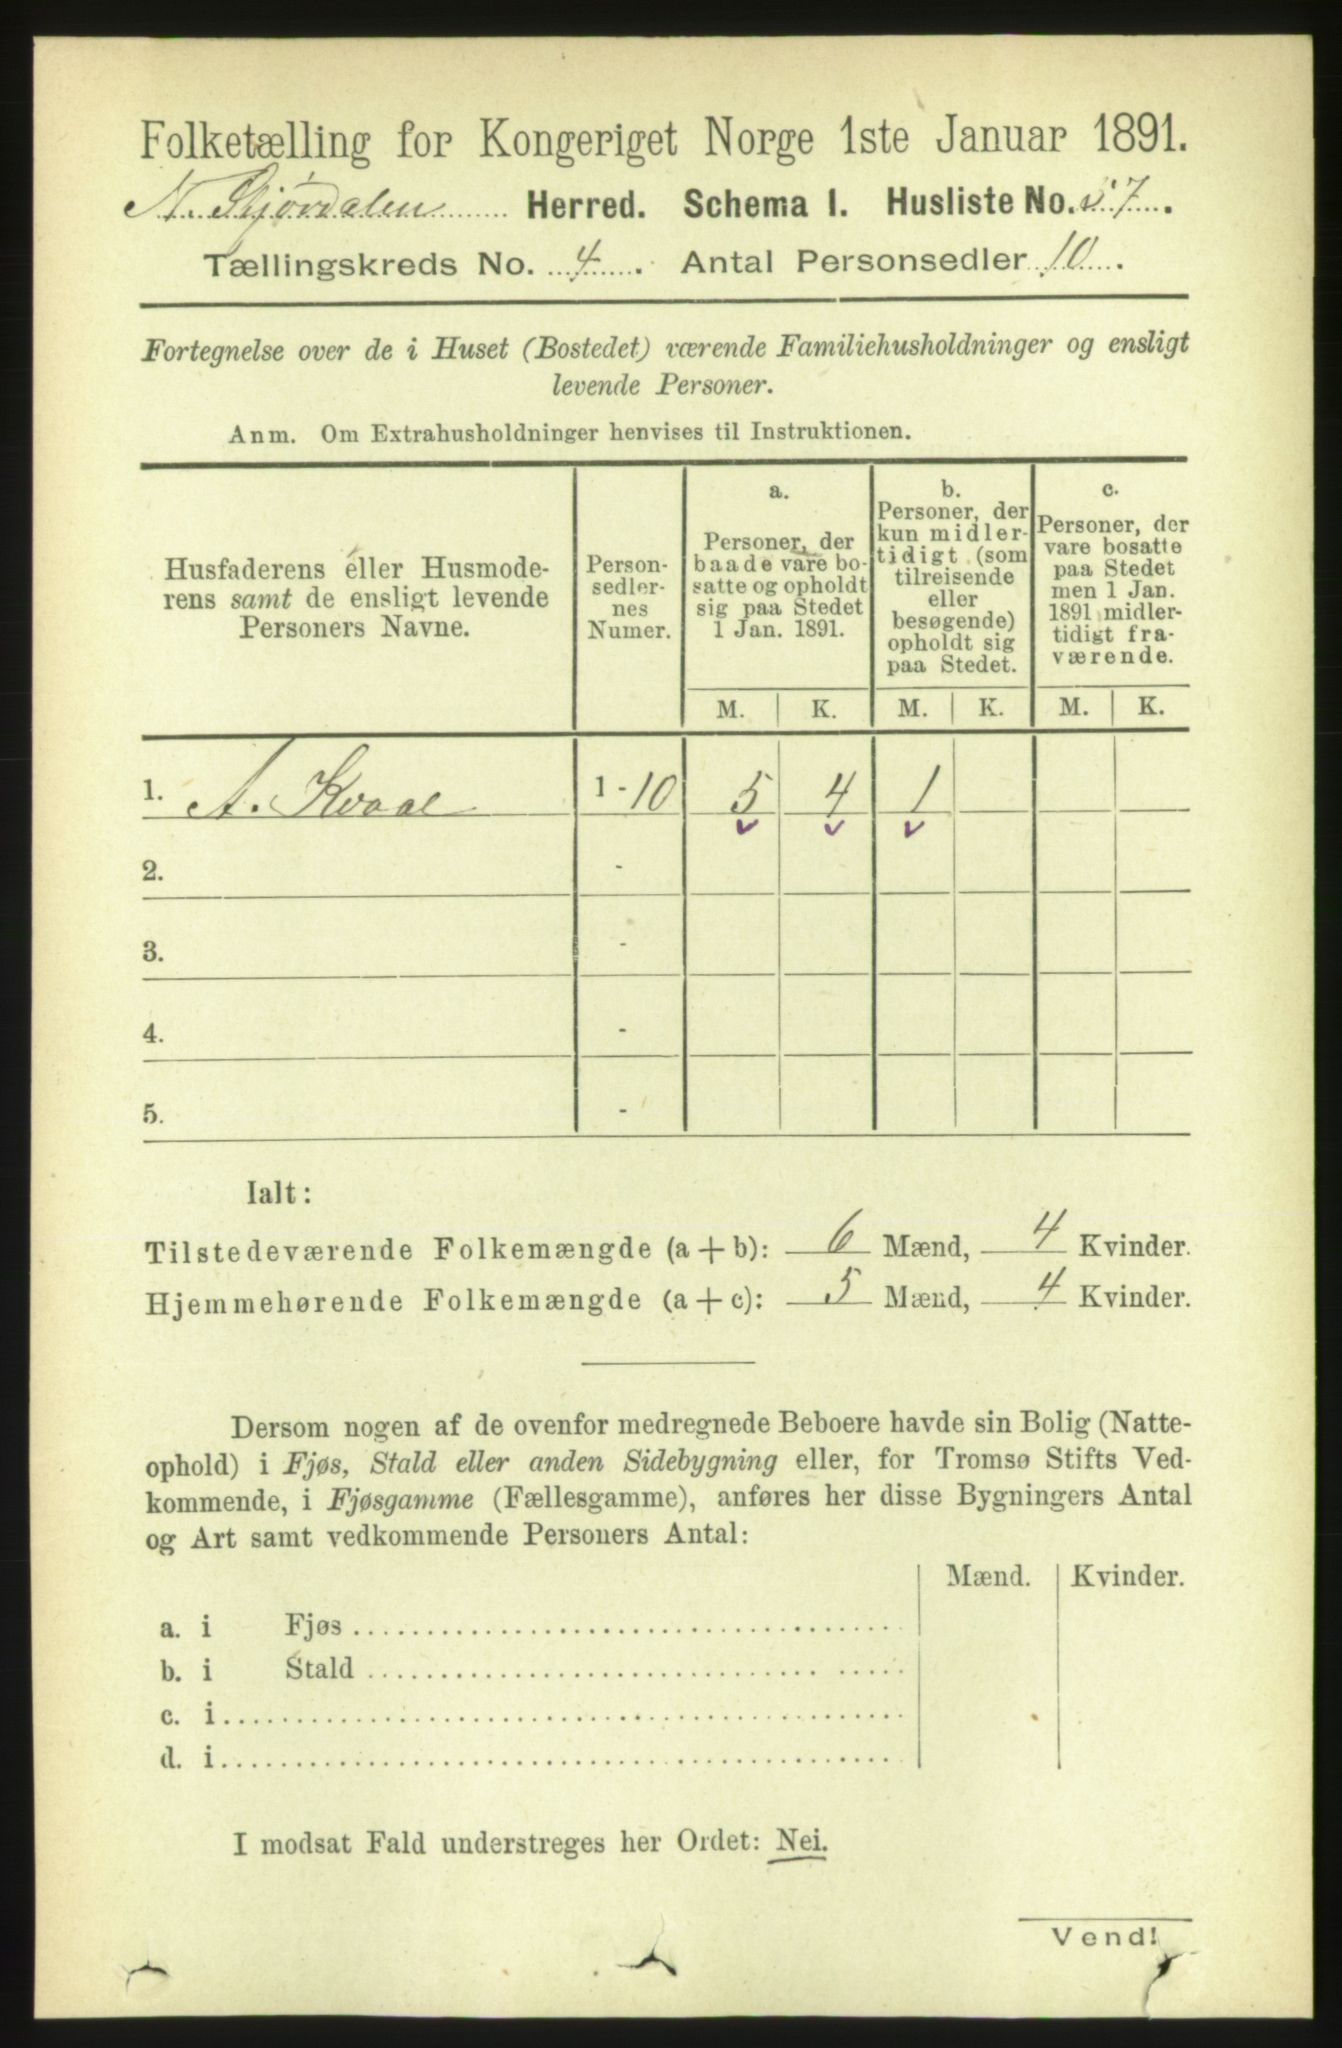 Folketælling for Kongeriget Norge 1ste Januar 1891.
N. Stjørdalen Herred. Schema I. Husliste No. 57.
Tællingskreds No. 4. Antal Personsedler 10.
Fortegnelse over de i Huset (Bostedet) værende Familiehusholdninger og ensligt
levende Personer.
Anm. Om Extrahusholdninger henvises til Instruktionen.
Husfaderens eller Husmode-
rens samt de ensligt levende
Personers Navne.
Person-
sedler-
nes
Numer.
a.
Personer, der
baade vare bo-
satte og opholdt
sig paa Stedet
1 Jan. 1891.
b.
Personer, der
kun midler-
tidigt (som
tilreisende
eller
besøgende)
opholdt sig
paa Stedet.
c.
Personer, der
vare bosatte
paa Stedet
men 1 Jan.
1891 midler-
tidigt fra-
værende.
M. K. M. K. M. K.
1. A. Kvaal 1 - 10 5 4 1
2. -
3. -
4. -
5. -
Ialt:
Tilstedeværende Folkemængde (a + b): 6 Mænd, 4 Kvinder.
Hjemmehørende Folkemængde (a + c): 5 Mænd, 4 Kvinder.
Dersom nogen af de ovenfor medregnede Beboere havde sin Bolig (Natte-
ophold) i Fjøs, Stald eller anden Sidebygning eller, for Tromsø Stifts Ved-
kommende, i Fjøsgamme (Fællesgamme), anføres her disse Bygningers Antal
og Art samt vedkommende Personers Antal:
Mænd. Kvinder.
a. i Fjøs
b. i Stald
c. i
d. i
I modsat Fald understreges her Ordet: Nei.
Vend!